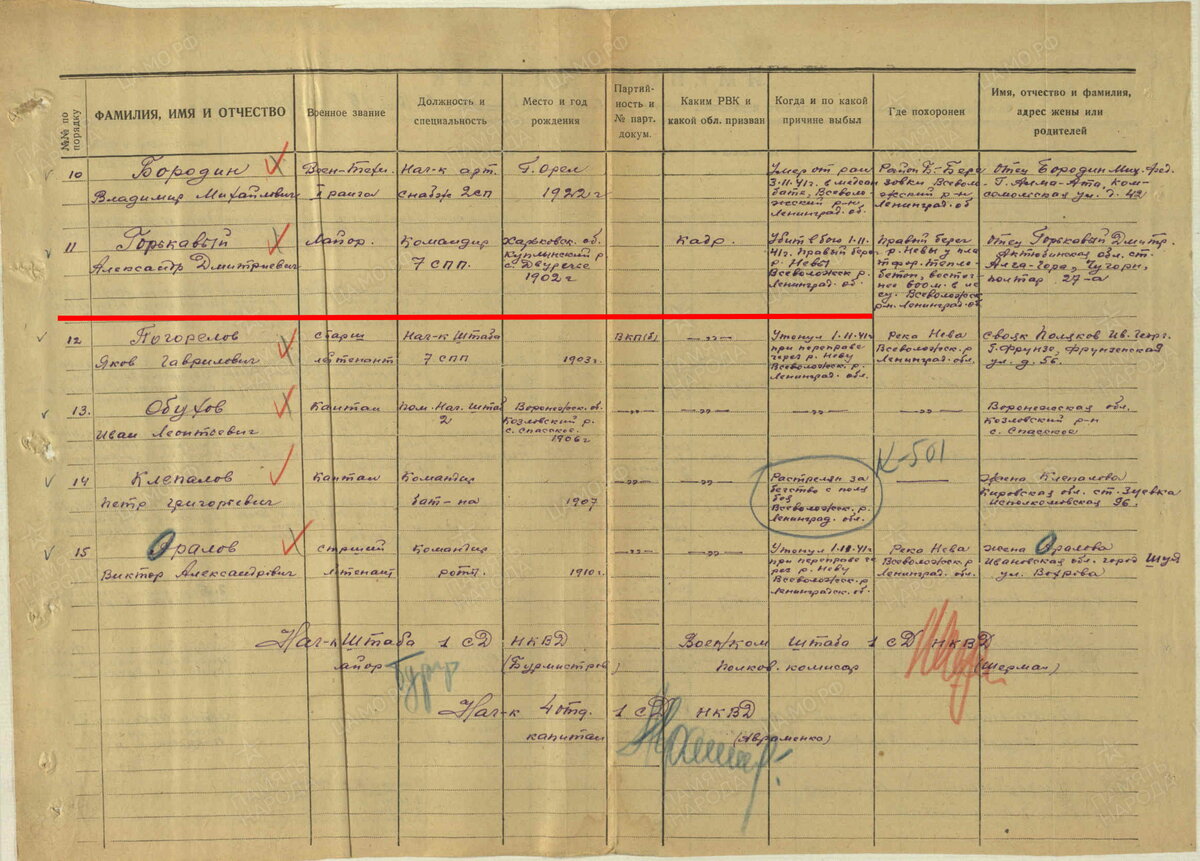 №№ по порядку
ФАМИЛИЯ, ИМЯ И ОТЧЕСТВО
Военное звание
Должность и
специальность
Место и год
рождения
Партий-
ность и
№ парт.
докум.
Каким РВК и
какой обл. призван
Когда и по какой
причине выбыл
Где похоронен
Имя, отчество и фамилия,
адрес жены или
родителей
10
Бородин
Владимир Михайлович
Воен-техн.
I ранга
Нач-к арт.
снабж 2СП
Г. Орел
1922 г
Умер от ран
3.11.41г. в медсан
бате, Всеволо
жский р-н
Ленинград. об.
Район Б-Бере
зовки Всеволо
жский р-н
Ленинград. об
Отец Бородин Мих. Фед.
Г. Алма-Ата, ком-
сомольская ул. д. 42
11
Горькавый
Александр Дмитриевич
Майор.
Командир
7 СПП.
Харьковск. об.
Купянский р.
с. Двуречье
1902 г
Кадр.
Убит в бою 1.11.
41г. Правый берег
р. Невы
Всеволожск р.
Ленинград. об.
Правый берег
р. Невы у
бетон, восточ-
нее 800м. в ле
су. Всеволожск.
р-н. Ленинград. об
Отец Горькавый Дмитр.
Актюбинская обл. ст.
27-а
12
Погорелов
Яков Гаврилович
старш
лейтенант
Нач-к Штаба
7 СПП
1903г.
ВКП(б)
— „ —
Утонул 1.11.41г
при переправе
через р. Неву
Всеволожск. р
Ленинград. обл.
Река Нева
Всеволожск. р
Ленинград. обл.
Свояк Поляков Ив. Георг.
Г. Фрунзе, Фрунзенская
ул. д. 56.
13.
Обухов
Иван Леонтьевич
Капитан
Пом. Нач. Штаб
2
Воронежск. об.
Козловский р.
с. Спасское.
1906 г
— „ —
— „ —
— „ —
— „ —
Воронежская обл.
Козловский р-н
с. Спасское
14
Клепалов
Петр Григорьевич
Капитан
Командир
бат-на
1907
— „ —
— „ —
Растрелян за
бегство с поля
боя
Всеволожск. р.
Ленинград. обл.
К-501
Жена Клепалова
Кировская обл. ст. Зуевка
Исполкомовская 96.
15
Оралов
Виктор Александрович
стрший
л-тенант
Командир
роты.
1910г.
— „ —
— „ —
Утонул 1-11-41г
при переправе че
рез р. Неву
Всеволожск. р
Ленинградск. об.
Река Нева
Всеволожск. р
Ленинград. об.
жена Оралова
Ивановская обл. город Шуя
ул. Вохрова
Нач-к Штаба 1 СД НКВД
майор (Бурмистров)
Воен/ком Штаба 1 СД НКВД
Полков. комисар (Шерман)
Нач-к 4 отд. 1 СД НКВД
капитан (Авраменко)
ЦАМО.РФ
ПАМЯТЬ
НАРОДА